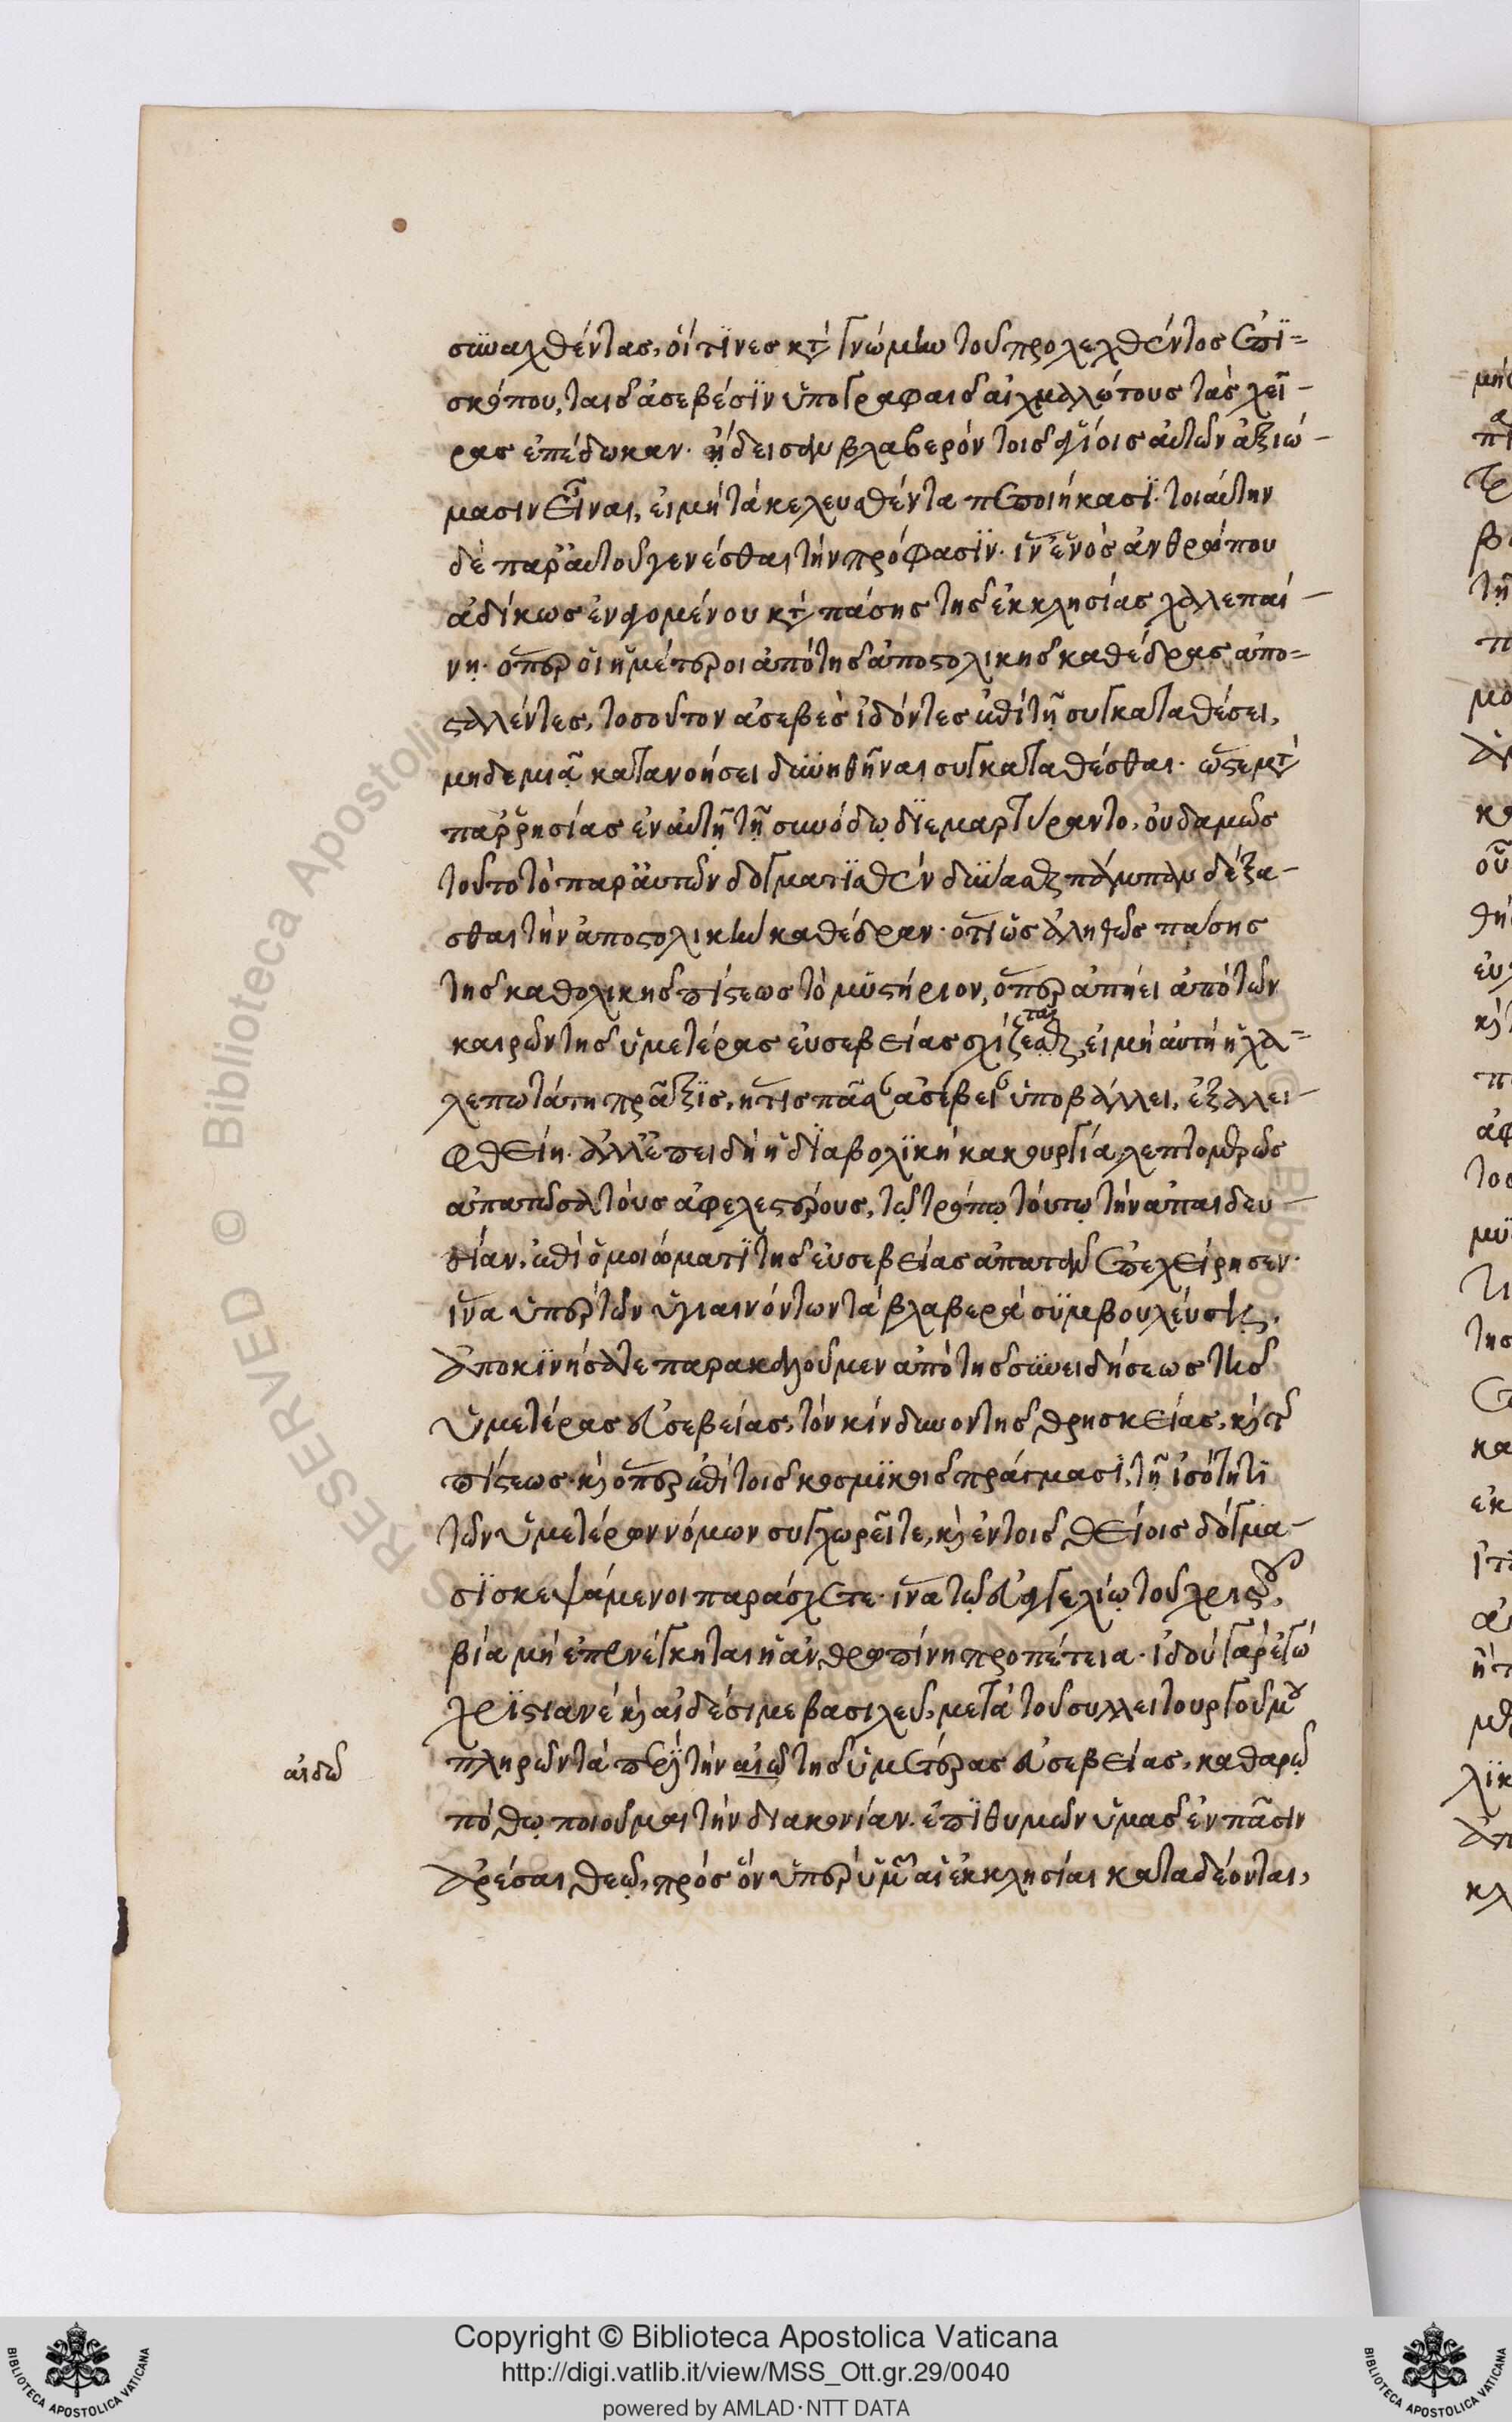 συναχθέντας, οἵτινες κατὰ γνώμην τοῦ προλεχθέντος ἐπι-
σκόπου, ταῖς ἀσεβέσιν ὑπογραφαῖς αἰχμαλώτους τὰς χεῖ-
ρας ἐπέδωκαν. ᾔδεισαν βλαβερὸν τοῖς οἰκείοις αὐτῶν ἀξιώ-
μασιν εἶναι, εἰ μὴ τὰ κελευσθέντα πεποιήκασι. τοιαύτην
δὲ παρ' αὐτοῦ γενέσθαι τὴν πρόφασιν. ἵν' ἑνὸς ἀνθρώπου
ἀδίκως ἐναγομένου κατὰ πάσης τῆς ἐκκλησίας χαλεπαί-
νῃ. ὅπερ οἱ ἡμέτεροι ἀπὸ τῆς ἀποστολικῆς καθέδρας ἀπο-
σταλέντες, τοσοῦτον ἀσεβὲς ἰδόντες ἐπὶ τῇ συγκαταθέσει,
μηδεμιᾷ κατανοήσει δυνηθῆναι συγκαταθέσθαι. ὥστε μετὰ
παρρησίας ἐν αὐτῇ τῇ συνόδῳ διεμαρτύραντο, οὐδαμῶς
τοῦτο τὸ παρ' αὐτῶν δογματισθὲν δύνασθαι πάμπαν δέξα-
σθαι τὴν ἀποστολικὴν καθέδραν. ὅτι ὡς ἀληθῶς πάσης
τῆς καθολικῆς πίστεως τὸ μυστήριον, ὅπερ ἀπῄει ἀπὸ τῶν
καιρῶν τῆς ὑμετέρας εὐσεβείας σχίζεσθαι, εἰ μὴ αὐτὴ ἡ χα-
λεπωτάτη πρᾶξις, ἥτις πᾶσαν ἀσέβειαν ὑποβάλλει, ἐξαλει-
φθείη. ἀλλ' ἐπειδὴ ἡ διαβολικὴ κακουργία λεπτομερῶς
ἀπατῶσα τοὺς ἀφελεστέρους, τῷ τρόπῳ τούτῳ τὴν ἀπαιδευ-
σίαν, ἐπὶ ὁμοιώματι τῆς εὐσεβείας ἀπατᾶν ἐπεχείρησεν.
ἵνα ὑπὲρ τῶν ὑγιαινόντων τὰ βλαβερὰ συμβουλεύσῃ,
ἀποκινήσατε παρακαλοῦμεν ἀπὸ τῆς συνειδήσεως τῆς
ὑμετέρας εὐσεβείας, τὸν κίνδυνον τῆς θρησκείας, καὶ τῆς
πίστεως. καὶ ὅπερ ἐπὶ τοῖς κοσμικοῖς πράγμασι, τῇ ἰσότητι
τῶν ὑμετέρων νόμων συγχωρεῖτε, καὶ ἐν τοῖς θείοις δόγμα-
σι σκεψάμενοι παράσχετε. ἵνα τῷ εὐαγγελίῳ τοῦ χριστοῦ,
βία μὴ ἐπενέγκηται ἡ ἀνθρωπίνη προπέτεια. ἰδοὺ γὰρ ἐγὼ
χριστιανὲ καὶ αἰδέσιμε βασιλεῦ, μετὰ τοῦ συλλειτουργοῦ μου
πληρῶν τὰ περὶ τὴν αἰῶ τῆς ὑμετέρας εὐσεβείας, καθαρῷ
αἰδῶ
πόθῳ ποιοῦμαι τὴν διακονίαν. ἐπιθυμῶν ὑμᾶς ἐν πᾶσιν
ἀρέσαι θεῷ, πρὸς ὃν ὑπὲρ ὑμῶν αἱ ἐκκλησίαι καταδέονται,
Copyright © Biblioteca Apostolica Vaticana
http://digi.vatlib.it/view/MSS_Ott.gr.29/0040
powered by AMLAD·NTT DATA